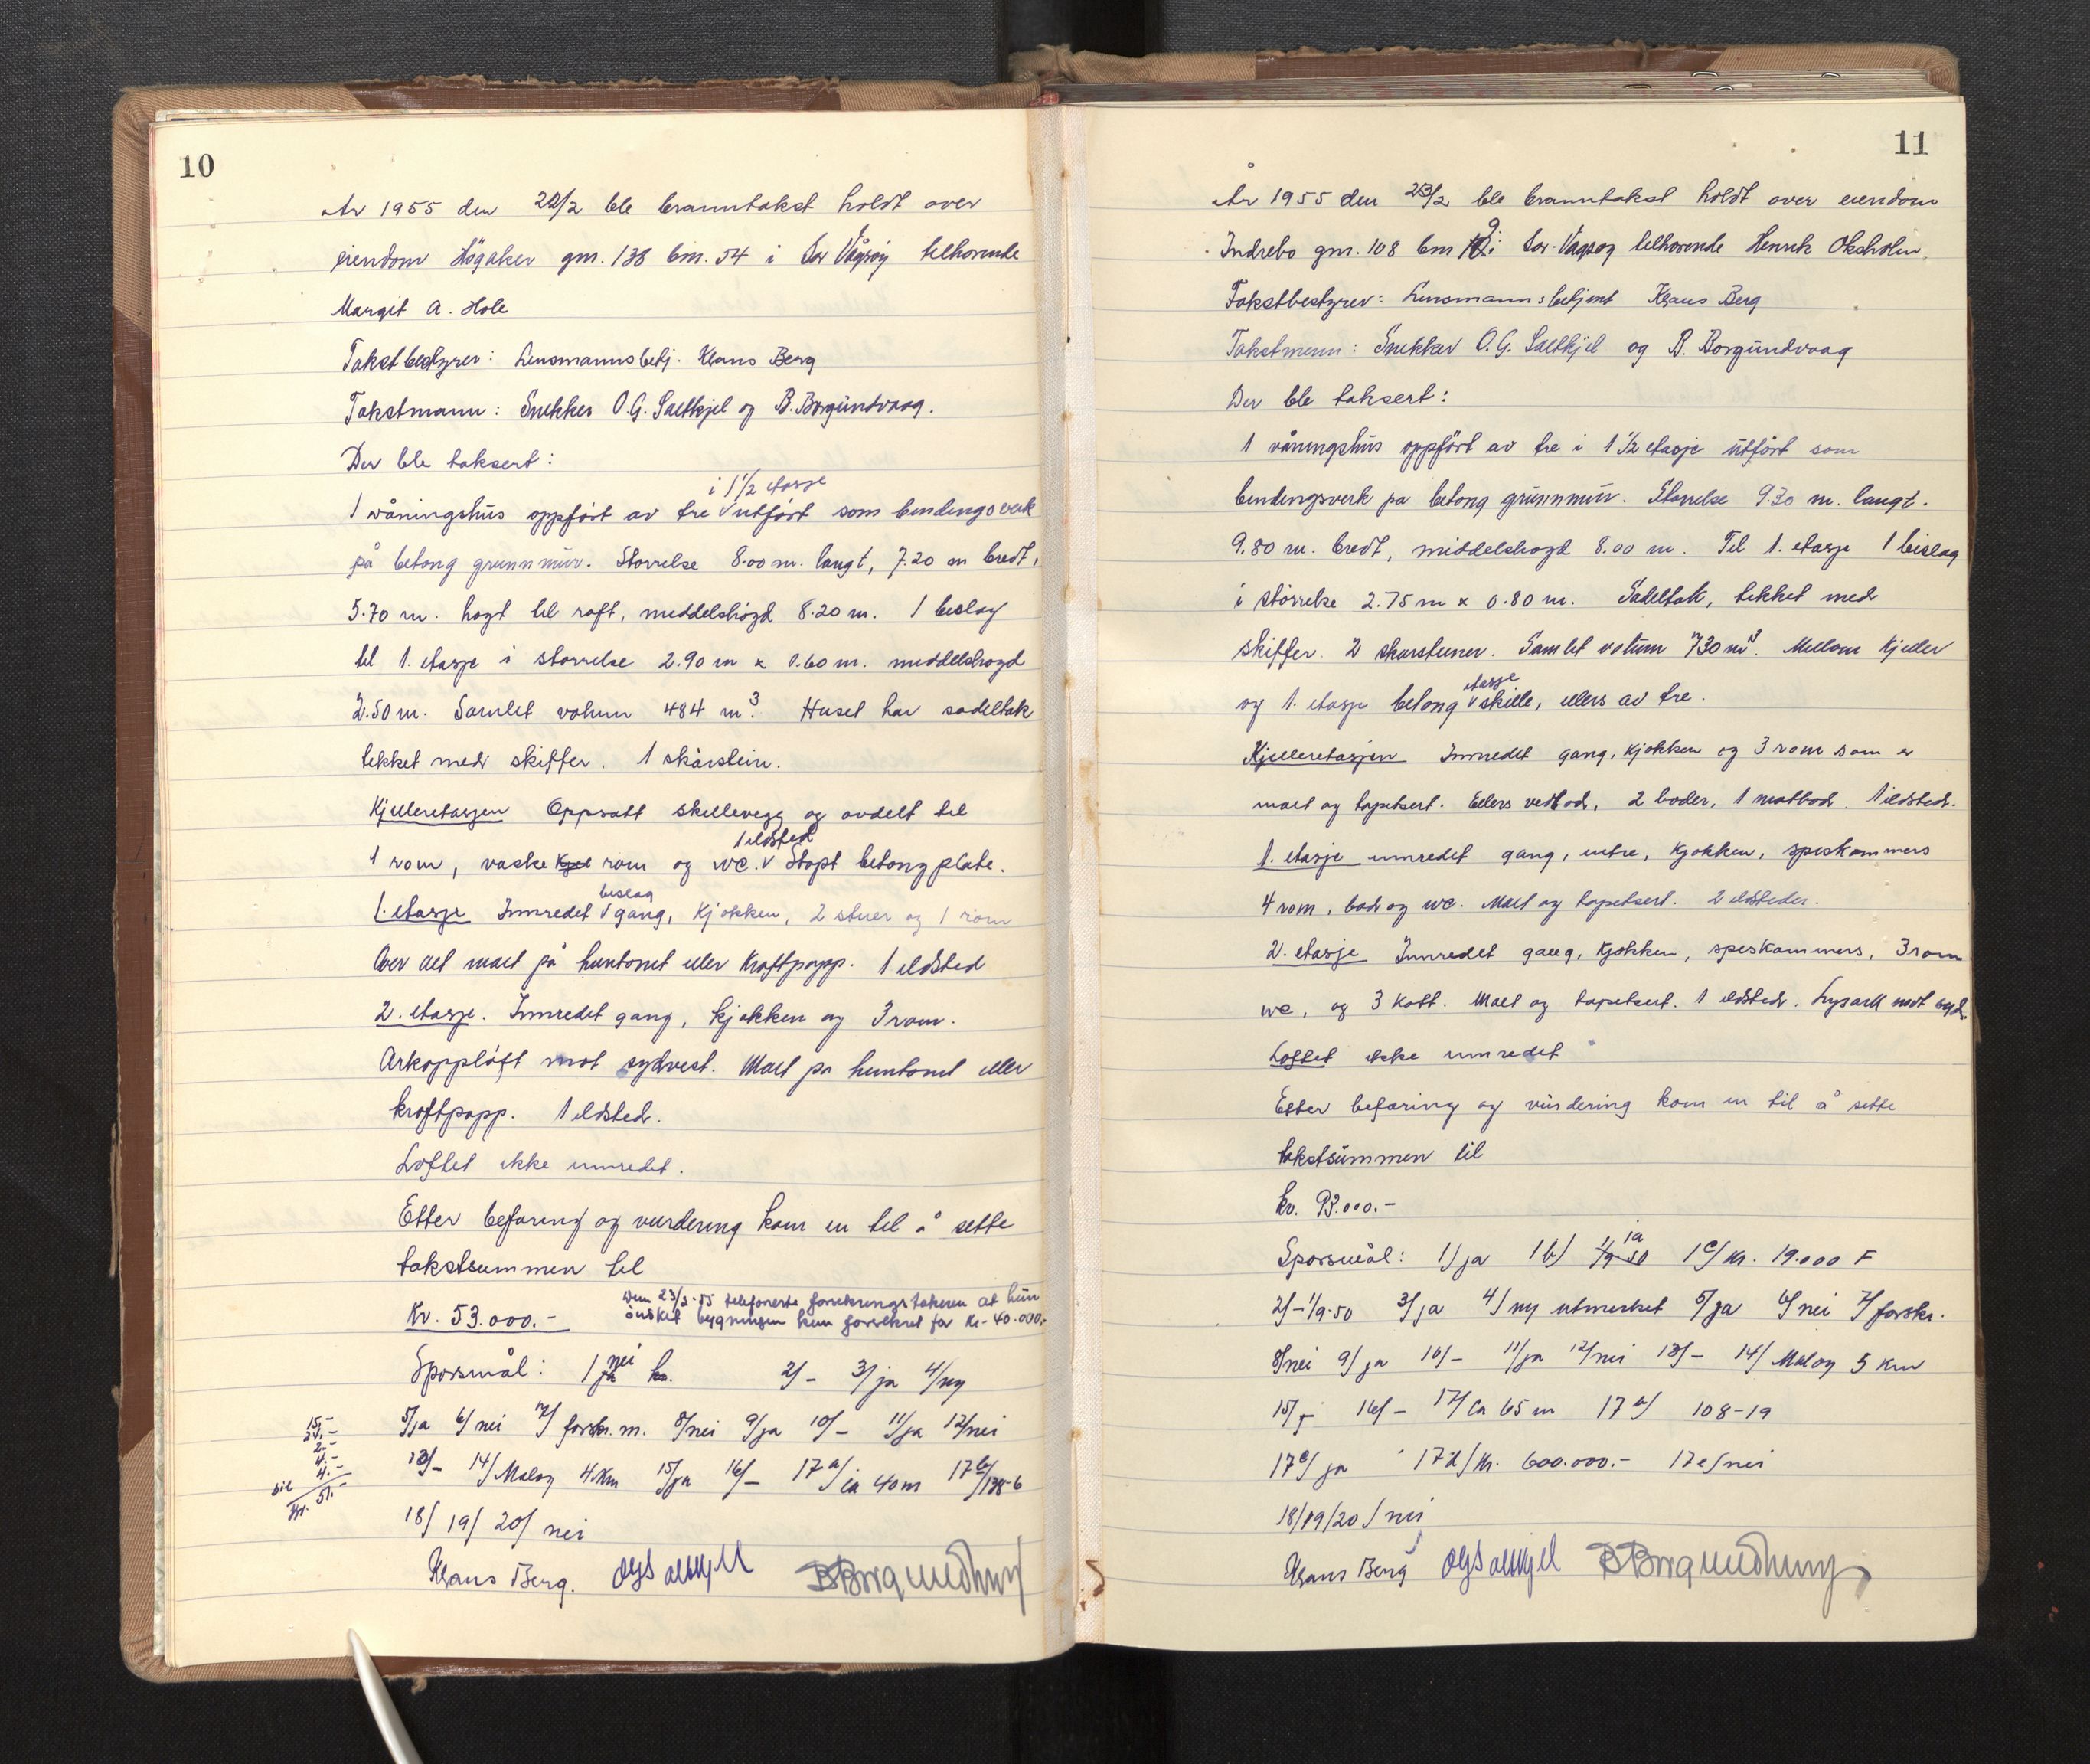 10
År 1955 den 22/2 ble branntakst holdt over
eiendom Högaker gnr. 138 bnr. 54 i Sør Vågsøy tilhørende
Margit A. Hole
Takstbestyrer: Lensmannsbetj. Klaus Berg
Takstmann: Snekker O.G. Saltkjel og B. Borgundvaag.
Der ble taksert:
i 1 1/2 etasje
1 våningshus oppført av tre utført som bindingsverk
på betong grunnmur. Størrelse 8.00 m. langt, 7.20 m bredt,
5.70 m. høgt til raft, middelshøgd 8.20 m. 1 beslag
til 1. etasje i størrelse 2.90 m x 0.60 m. middelshøgd
2.50 m. Samlet volum 484 m³. Huset har sadeltak
tekket med skiffer. 1 skårstein.
Kjelleretasjen Oppsatt skillevegg og avdelt til
1 ildsted
1 rom, vaske rom og wc. Støpt betongplate.
beslag
1. etasje Innredet gang, kjøkken, 2 stuer og 1 rom
Over alt malt på huntonit eller kraftpapp. 1 ildsted
2. etasje. Innredet gang, kjøkken og 3 rom.
Arkoppløft mot sydvest. Malt på huntonit eller
kraftpapp. 1 ildsted.
Loftet ikke innredet.
Etter befaring og vurdering kom en til å sette
takstsummen til
Kr. 53.000.-
Den 23/2-55 telefonerte forsikringstakeren at hun
ønsket bygningen kun forsikret for kr. 40.000.-
Spørsmål: 1/ nei 2/- 3/ ja 4/ ny
5/ja 6/ nei 7/ forskr. m. 8/nei 9/ja 10/- 11/ja 12/nei
13/- 14/ Måløy 4 km 15/ja 16/- 17 a/ ca 40 m 17 b/ 138-6
15.-
2.-
4.-
4.-
kr. 51.-
18/ 19/ 20/ nei
Klaus Berg. OGSaltkjell BBorgundvaag
11
År 1955 den 23/2 ble branntakst holdt over eiendom
Indrebø gnr. 108 bnr 9 i Sør-Vågsøy tilhørende Henrik Oksholm.
Takstbestyrer: Lensmannsbetjent Klaus Berg
Takstmenn: Snekker O.G. Saltkjel og B. Borgundvaag
Der ble taksert:
1 våningshus oppført av tre i 1 1/2 etasje utført som
bindingsverk på betong grunnmur. Størrelse 9.30 m. langt.
9.80 m. bredt, middelshøgd 8.00 m. Til 1. etasje 1 bislag
i størrelse 2.75 m x 0.80 m. Sadeltak, tekket med
skiffer. 2 skarsteiner. Samlet volum 730 m³. Mellom kjeller
etasje
og 1. etasje betong skille, ellers av tre.
Kjelleretasjen Innredet gang, kjøkken og 3 rom som er
malt og tapetsert. Ellers vedbod, 2 boder, 1 matbod 1 ildsted.
1. etasje innredet gang, entre, kjøkken, speskammers
4 rom, bad og wc. Malt og tapetsert. 2 ildsteder.
2. etasje Innredet gang, kjøkken, speskammers, 3 rom
wc, og 3 kott. Malt og tapetsert. 1 ildsted. Lysark mot syd.
Loftet ikke innredet
Etter befaring og vurdering kom en til å sette
takstsummen til
kr. 93.000.-
ja
Spørsmål: 1/ ja 1 b/ 1/9-50 1 c/ kr. 19.000 F
2/-1/9-50 3/ ja 4/ ny utmerket 5/ ja 6/ nei 7/ forskr.
8/nei 9/ ja 10/- 11/ja 12/nei 13/- 14/ Måløy 5 km
15/ - 16/- 17/ ca 65 m 17 b/ 108-19
17 c/ ja 17 d/ kr. 600.000.- 17 e/ nei
18/19/20/ nei
Klaus Berg OGSaltkjel BBorgundvaag